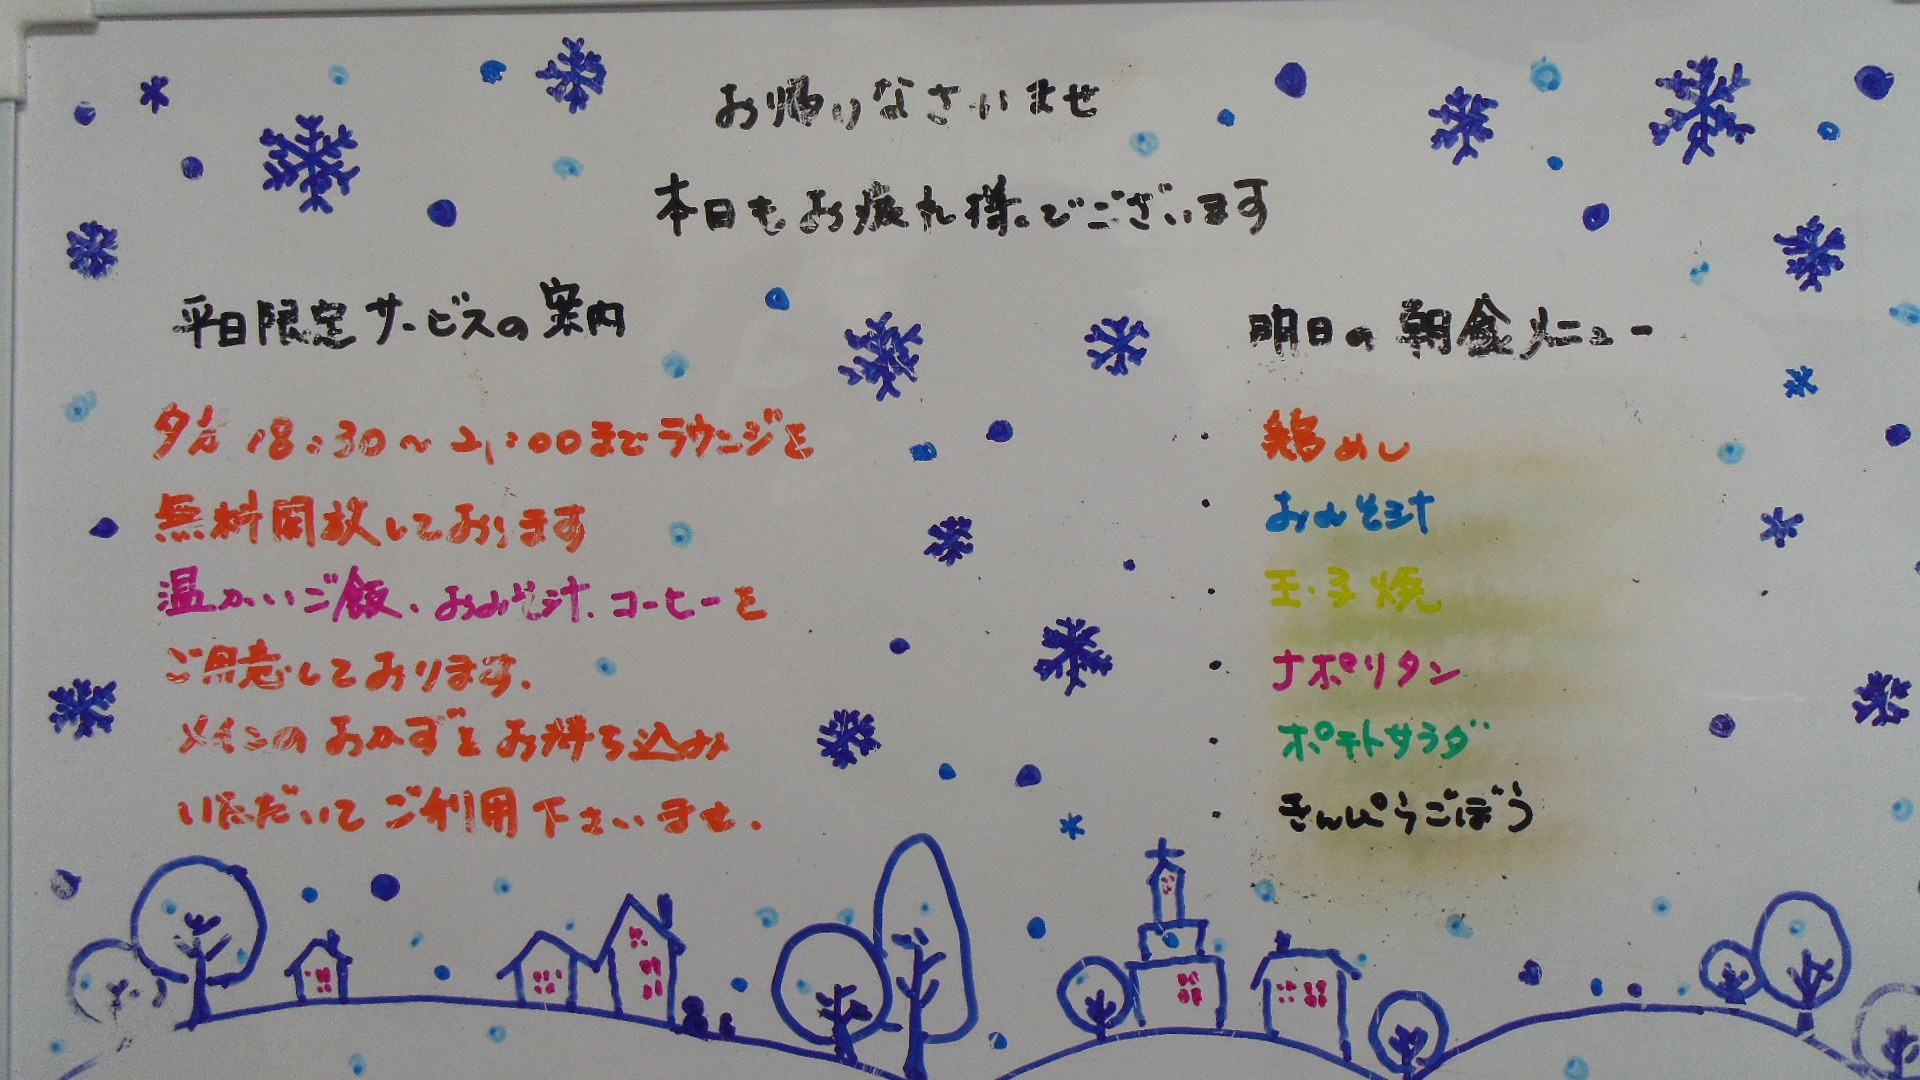 お帰りなさいませ
本日もお疲れ様でございます
平日限定サービスの案内
夕方18:30～21:00までラウンジを
無料開放しております
温かいご飯、おみそ汁、コーヒーを
ご用意しております.
メインのおかずをお持ち込み
いただいてご利用下さいませ.
明日の朝食メニュー
・鶏めし
・おみそ汁
・玉子焼
・ナポリタン
・ポテトサラダ
・きんぴらごぼう